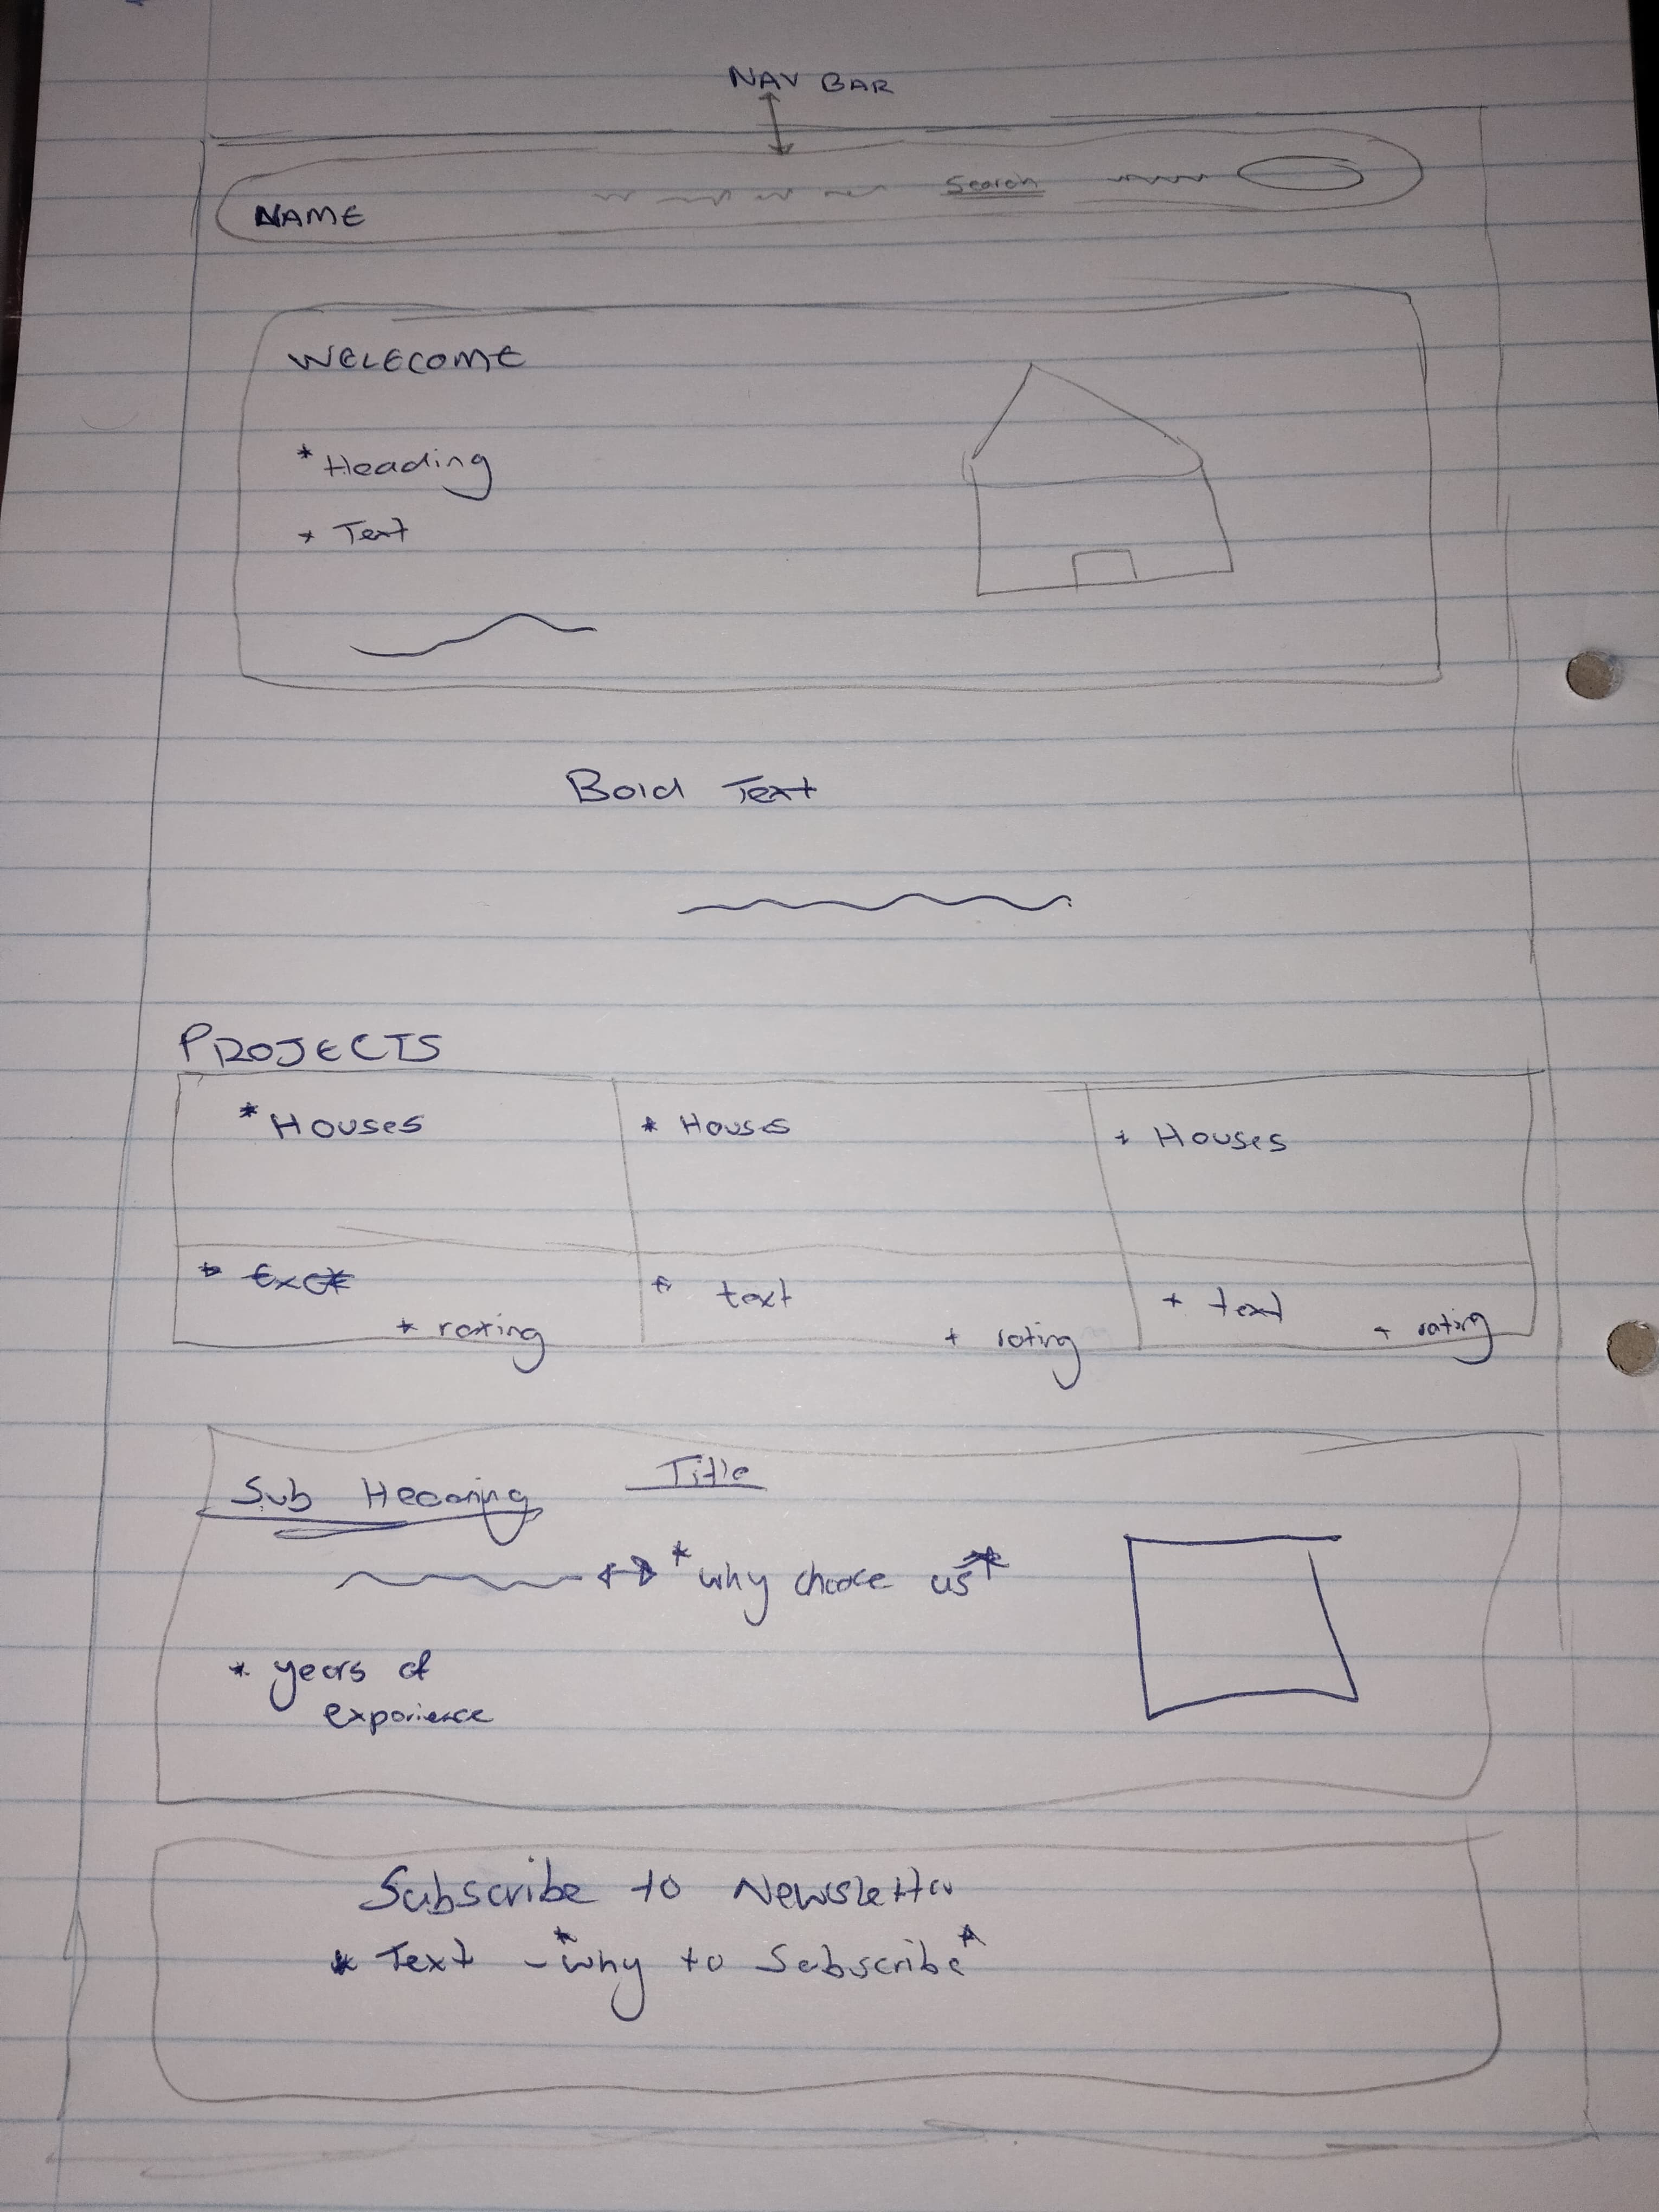 NAV BAR
NAME Search
WELECOME
* Heading
* Text
Bold Text
PROJECTS
* Houses * Houses * Houses
* text * text
* rating * rating * rating
Sub Heading Title
* why choose us *
* years of
experience
Subscribe to Newsletter
* Text - * why to Subscribe *